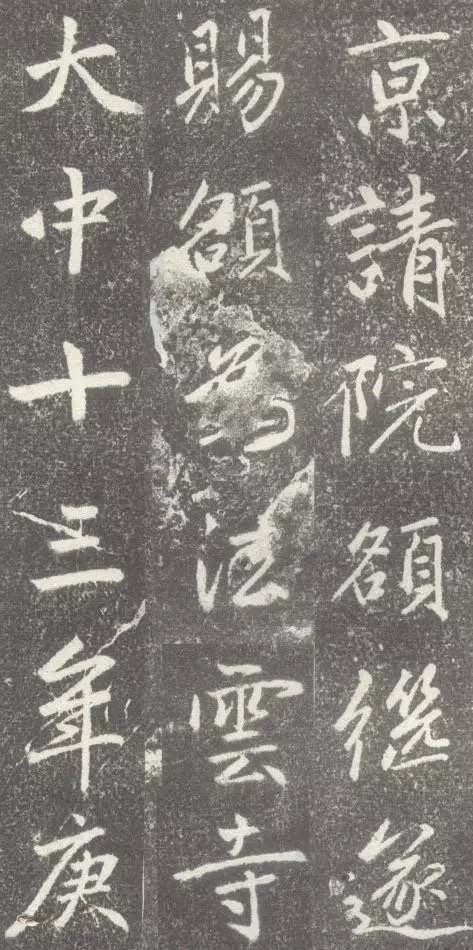 京請院額継遂
賜額為法雲寺
大中十三年庚